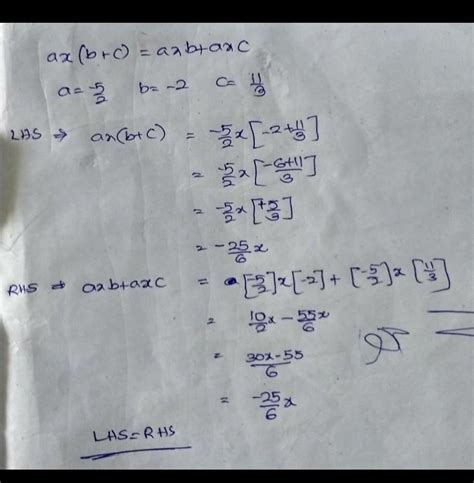 ax(b+c) = axb+axc
a = -5/2   b = -2   c = 11/3
LHS ⇒ ax(b+c) = -5/2 x [-2+11/3]
= -5/2 x [-6+11/3]
= -5/2 x [+5/3]
= -25/6 x
RHS ⇒ axb+axc = [-5/2]x[-2] + [-5/2]x[11/3]
= 10/2 x - 55x/6
= 30x-55/6
= -25/6 x
LHS=RHS